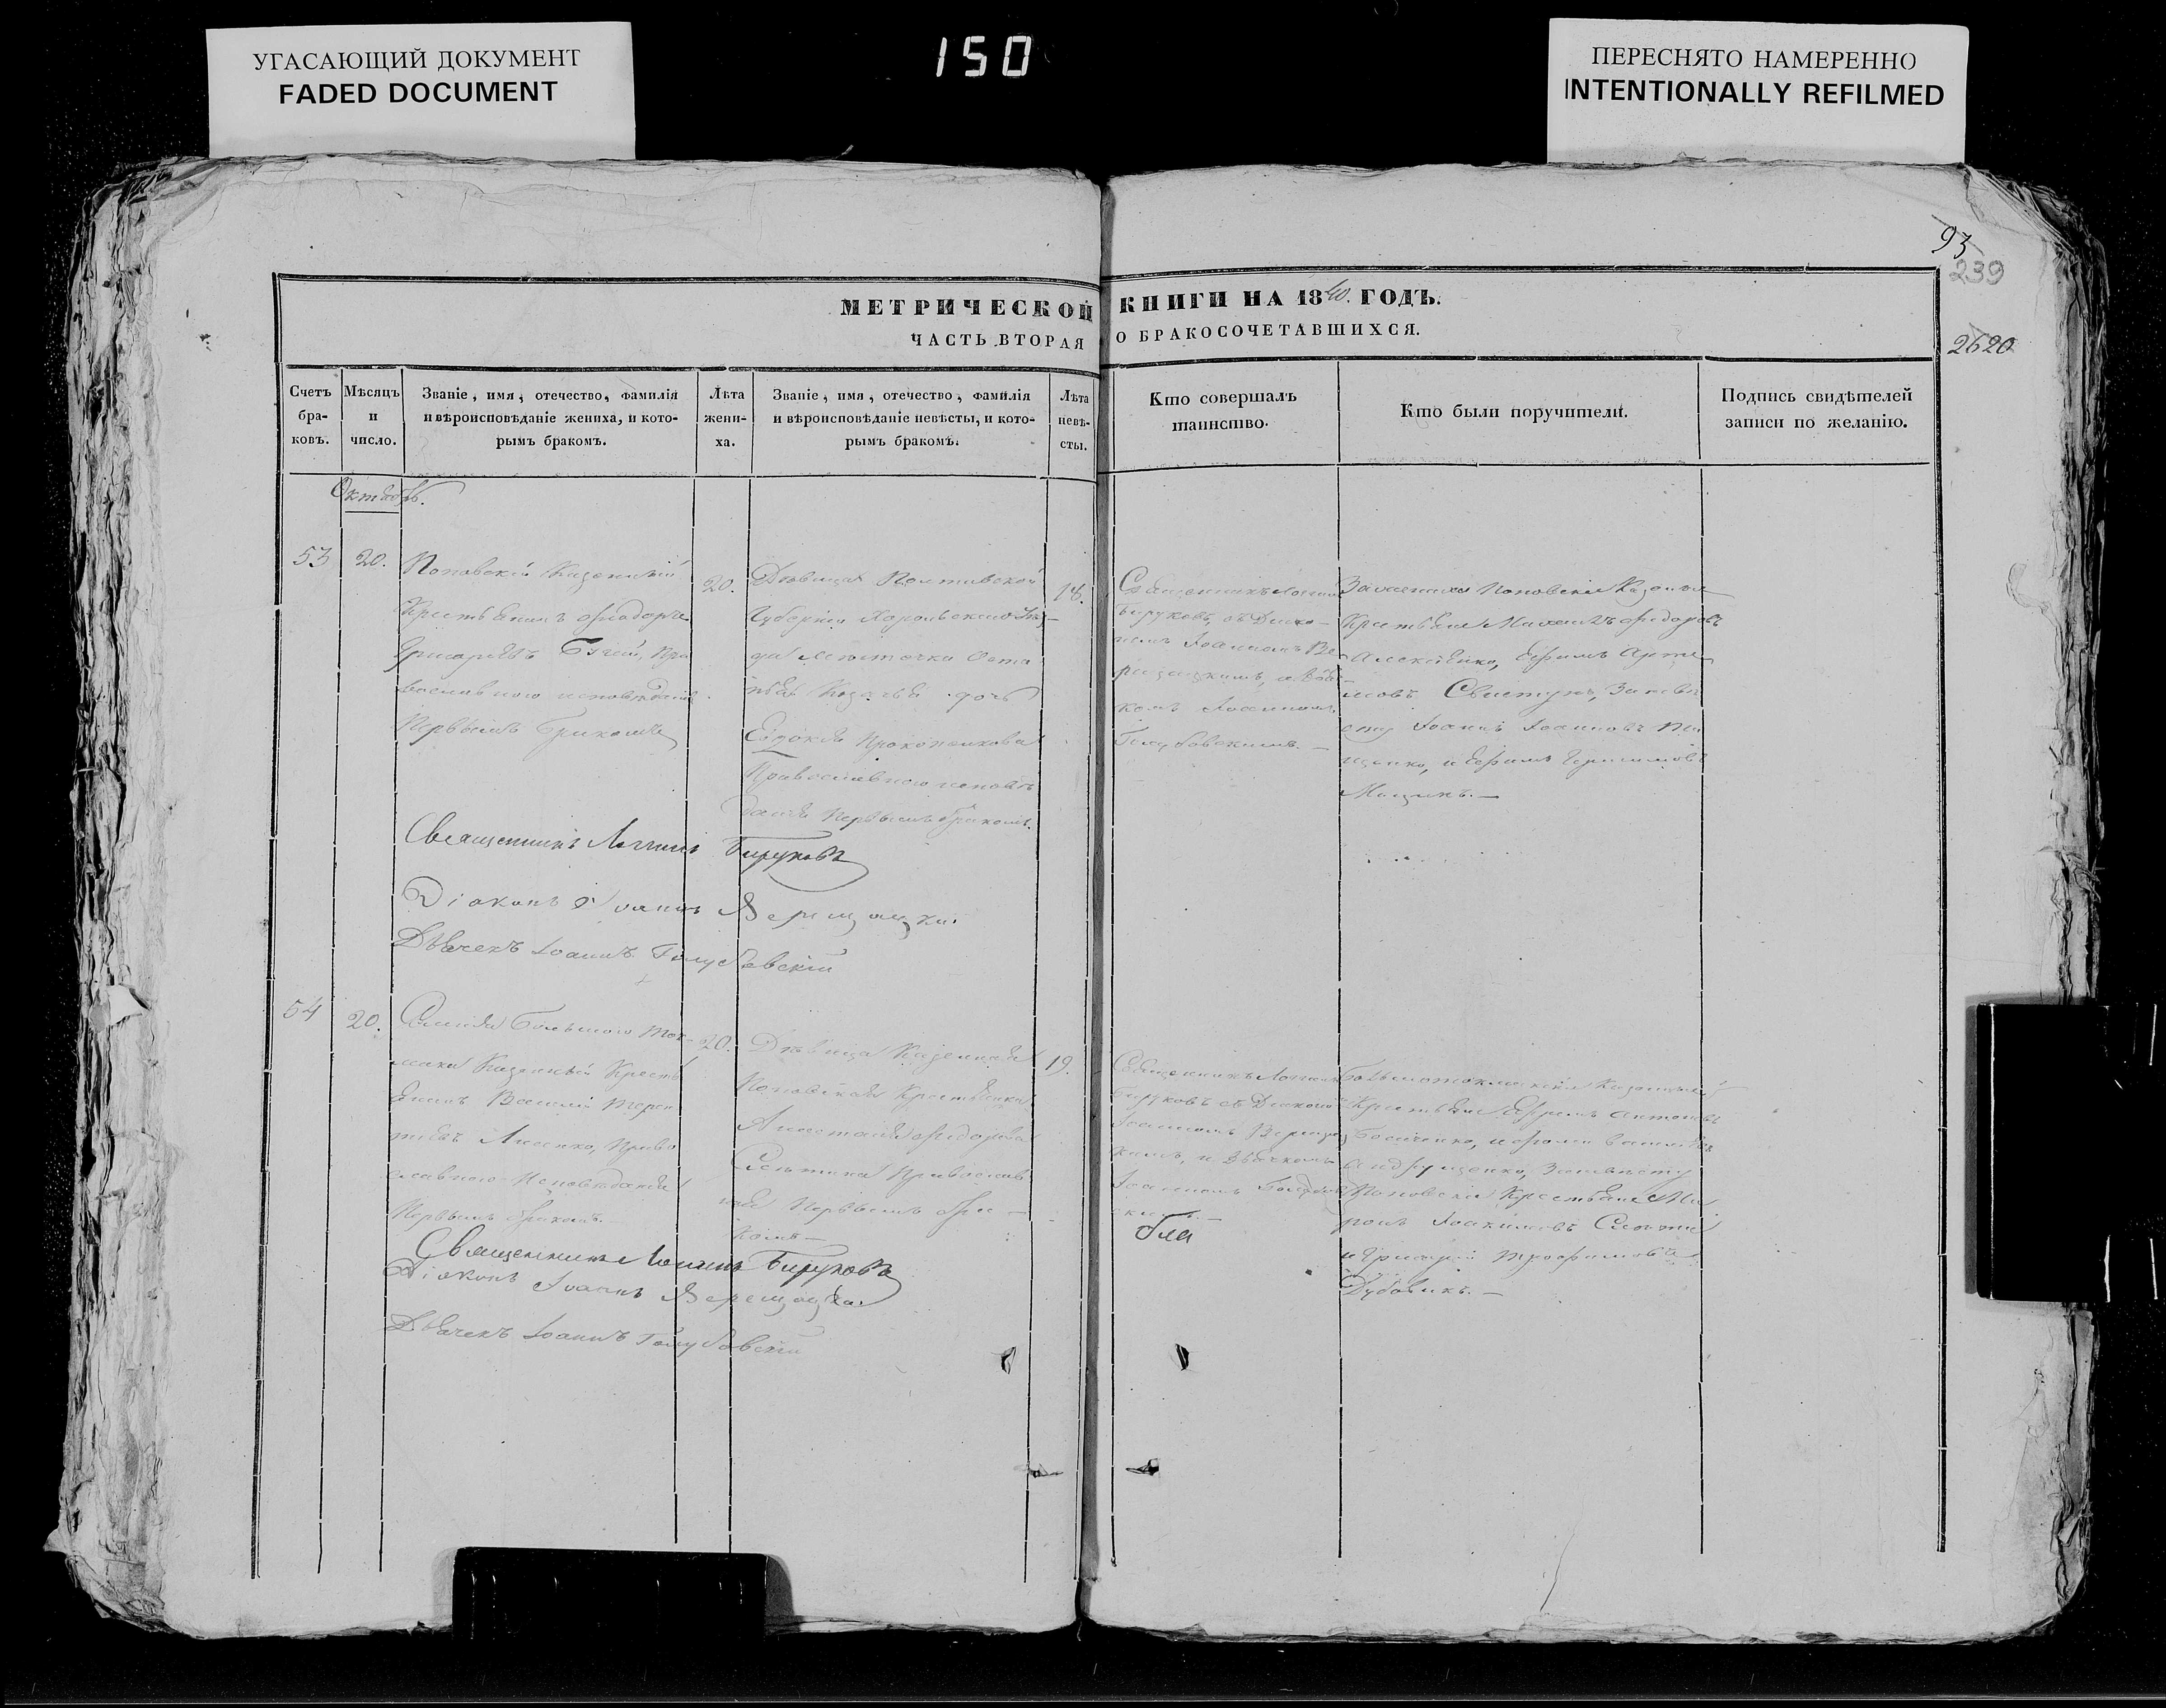 УГАСАЮЩИЙ ДОКУМЕНТ
FADED DOCUMENT
150
ПЕРЕСНЯТО НАМЕРЕННО
INTENTIONALLY REFILMED
93
239
2620
МЕТРИЧЕСКОЙ КНИГИ НА 1840. ГОДЪ.
ЧАСТЬ ВТОРАЯ О БРАКОСОЧЕТАВШИХСЯ.
Счетъ бра- ковъ.
Мѣсяцъ и число.
Званіе, имя, отечество, фамилія
и вѣроисповѣданіе жениха, и кото-
рымъ бракомъ.
Лѣта жени- ха.
Званіе, имя, отечество, фамилія
и вѣроисповѣданіе невѣсты, и кото-
рымъ бракомъ.
Лѣта невѣ- сты.
Кто совершалъ
таинство.
Кто были поручители.
Подпись свидѣтелей
записи по желанію.
Октябрь.
53
20.
Поповскій Казенный
Крестьянинъ Феодоръ
Григорьевъ Пра
вославного исповѣданія
Первымъ бракомъ
20.
Дѣвица Полтавской
Губерніи Хорольского Уѣз
да Местечка
Козачья дочь
Евдокія Прокопенкова
Православного исповѣ
данія Первымъ бракомъ.
18.
Священникъ Логгинъ
Бируковъ, съ Диако-
номъ Іоанномъ Ве
рещацкимъ, и Дья
комъ Іоанномъ
Голубовскимъ.
За жениха Поповскіе Казенные
Крестьяне Михаилъ Федоровъ
Алексѣенко, Ефимъ Арте
мовъ Свистунъ, За невѣ
сту Іоаннъ Іоанновъ
и Ефимъ
Священникъ Логгинъ Бируковъ
Діаконъ Іоаннъ Верещацки.
Дьячекъ Іоаннъ Голубовскій
54
20.
Селенія Большого Ток-
мака Казенный Кресть
янинъ Василій Терен
тьевъ Лисенко, Право
славного Исповѣданія
Первымъ бракомъ.
20.
Дѣвица Казенная
Поповская Крестьянка
Анастасія Федорова
Православ
ная Первымъ бра-
комъ
19.
Священникъ Логгинъ
Бируковъ съ Диакономъ
Іоанномъ Верещац
кимъ, и Дьячкомъ
Іоанномъ Голубов
скимъ.
Большотокмакскіе Казенные
Крестьяне Ефремъ Антоновъ
Андрущенко, За невѣсту
Поповскіе Крестьяне Ми
ронъ Іоакимовъ
и Григорій Трофимовъ
Дубовикъ.
Священникъ Логгинъ Бируковъ
Діаконъ Іоаннъ Верещацки.
Дьячекъ Іоаннъ Голубовскій